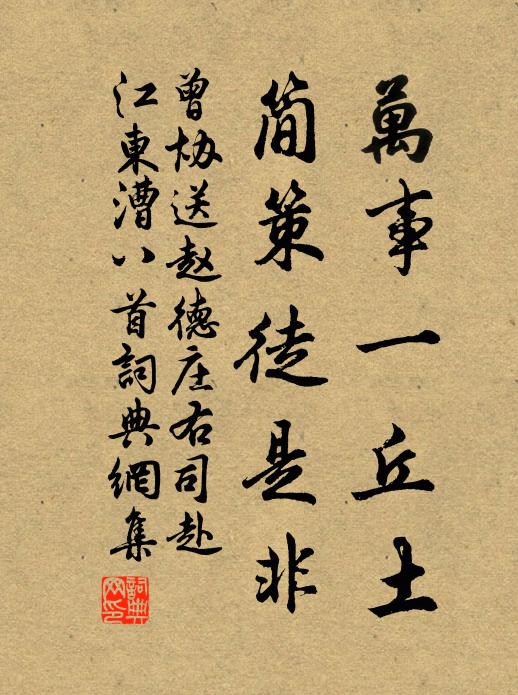 萬事一丘土
简策徒是非
曾协送赵德庄右司赴
江東漕八首詞典網集
詞典网印